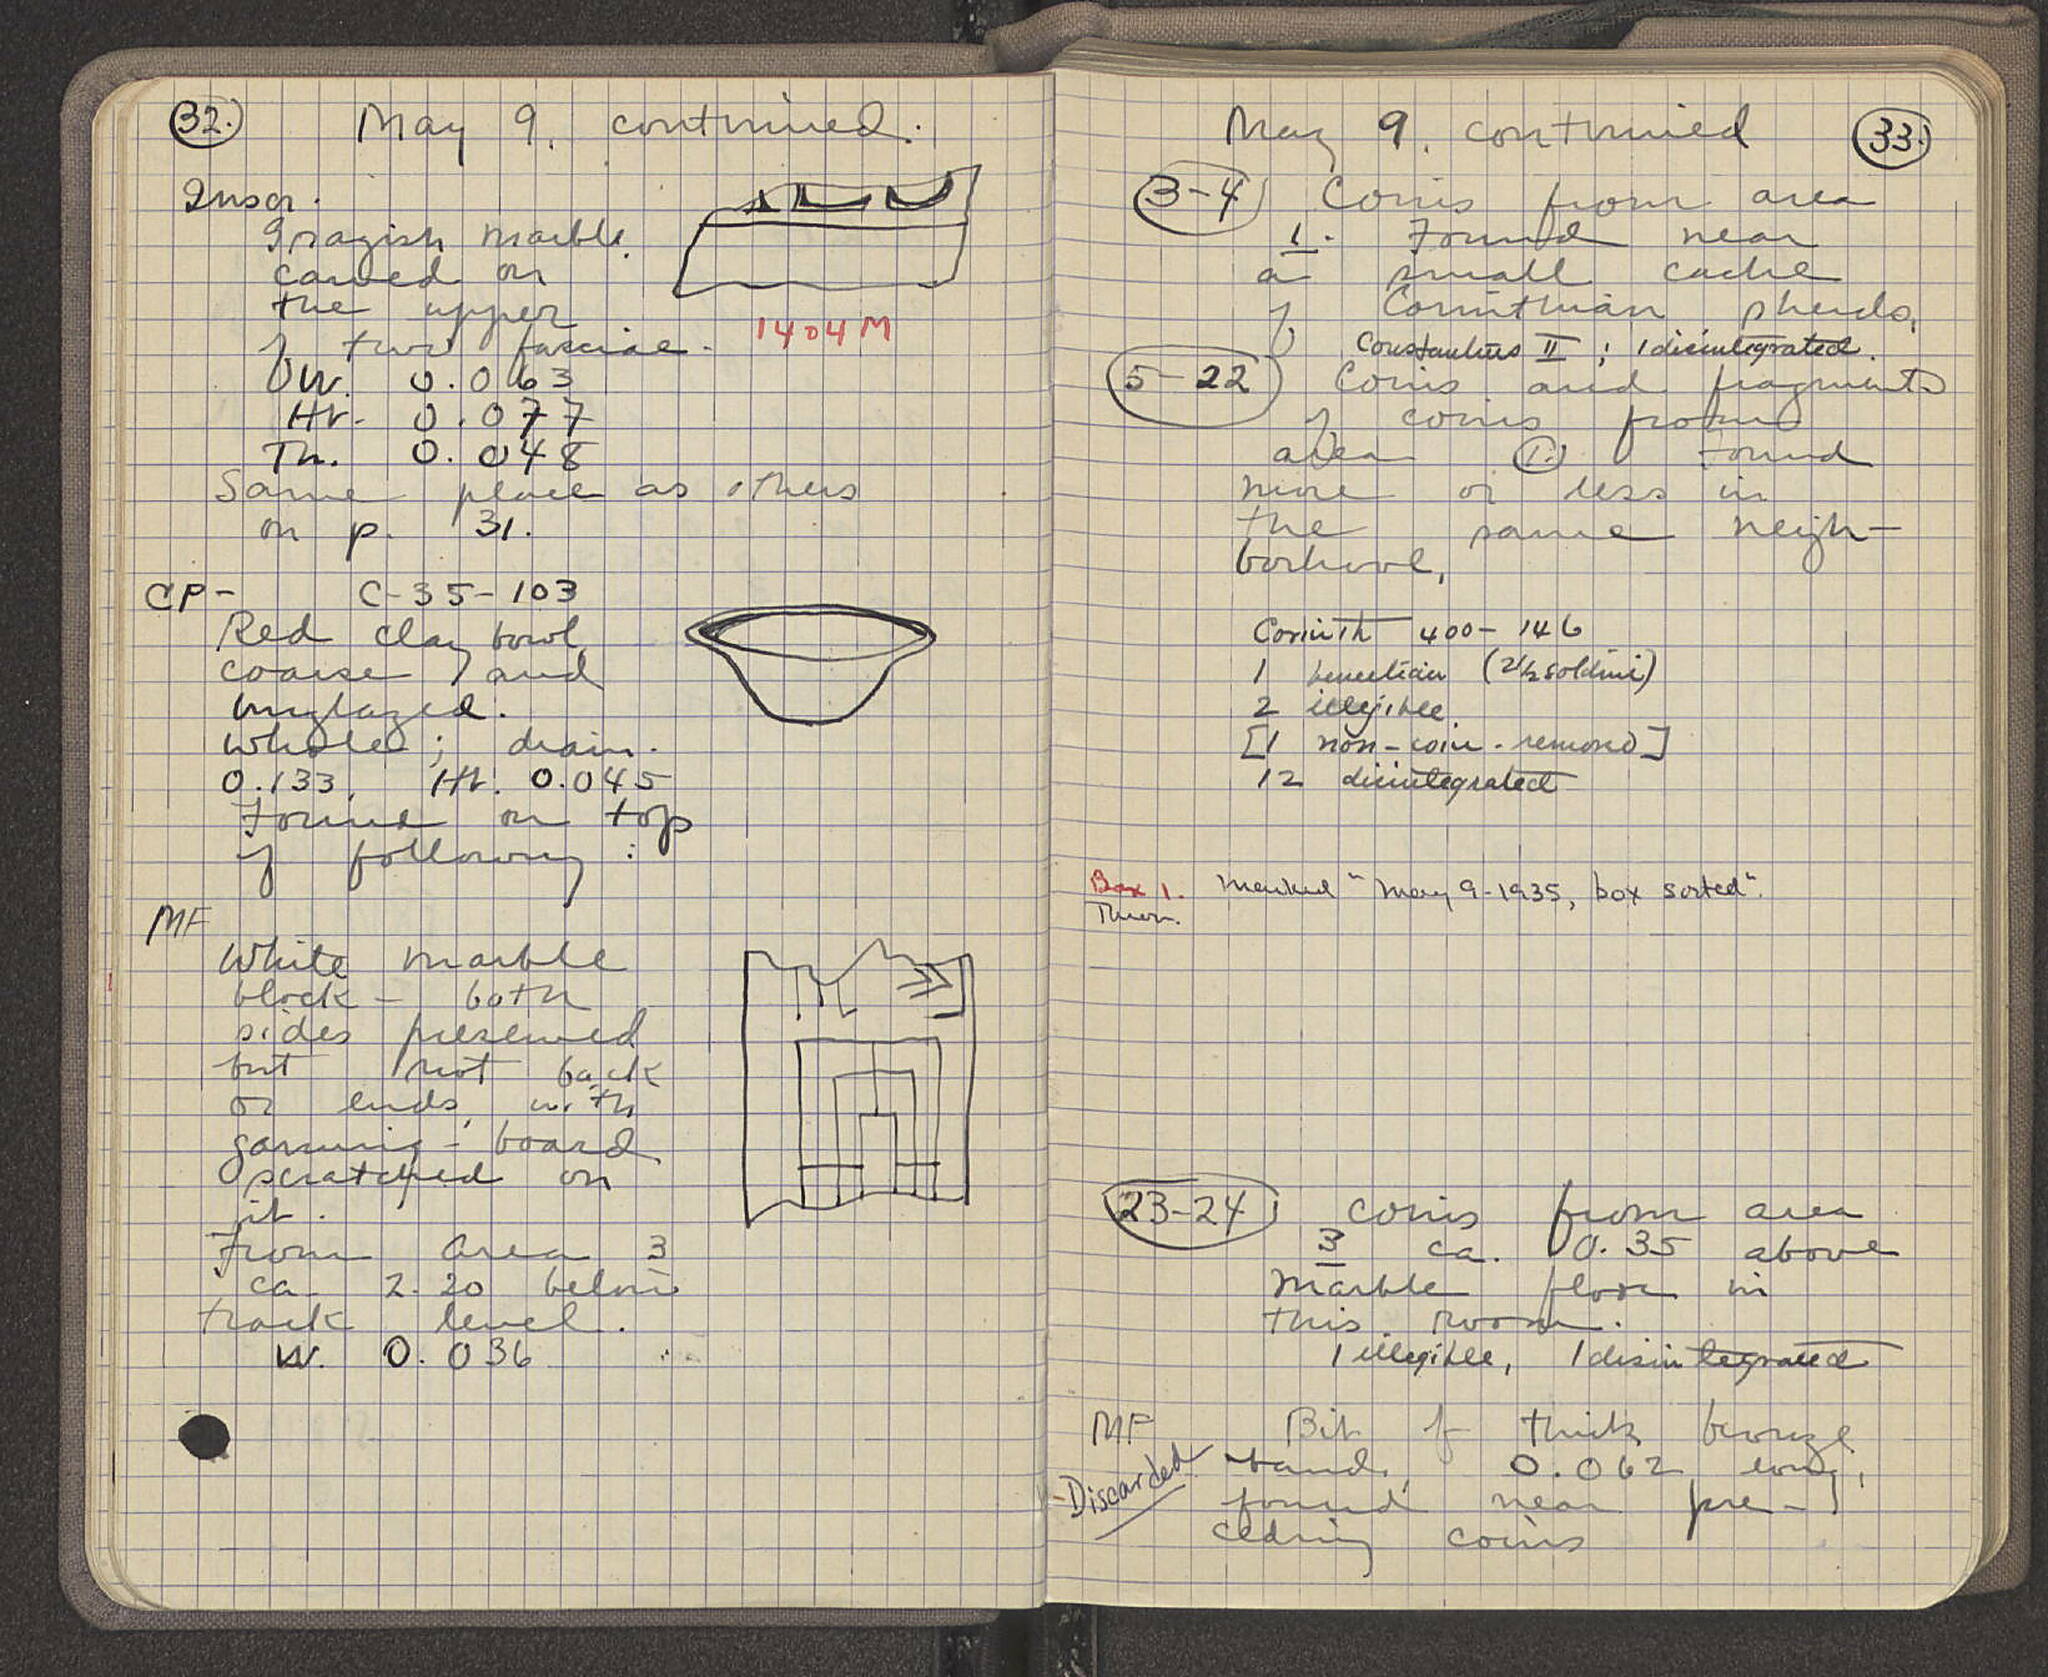 32.
May 9, continued.
Inscr.
Grayish marble,
carved on
the upper
of two fasciae.
W. 0.063
Ht. 0.077
Th. 0.048
Same place as others
on p. 31.
1404M
CP- C-35-103
Red clay bowl,
coarse and
unglazed.
Whole; diam.
0.133, Ht. 0.045
Found on top
of following:
MF
White marble
block - both
sides preserved
but not back
or ends, with
gaming-board
scratched on
it.
From area 3
ca. 2.20 below
track level.
W. 0.036
May 9, continued
33.
3-4 Coins from area
1. Found near
a small cache
of Corinthian sherds.
Constantius II; 1 disintegrated.
5-22 Coins and fragments
of coins from
area 1. Found
more or less in
the same neigh-
borhood,
Corinth 400-146
1 Venetian (2½ soldini)
2 illegible.
[1 non-coin - removed]
12 disintegrated
Box 1. Marked "May 9-1935, box sorted".
23-24 Coins from area
3 ca. 0.35 above
marble floor in
this room.
1 illegible, 1 disintegrated
MF Bit of thick bronze
band, 0.062 long,
Discarded
found near pre-
ceding coins